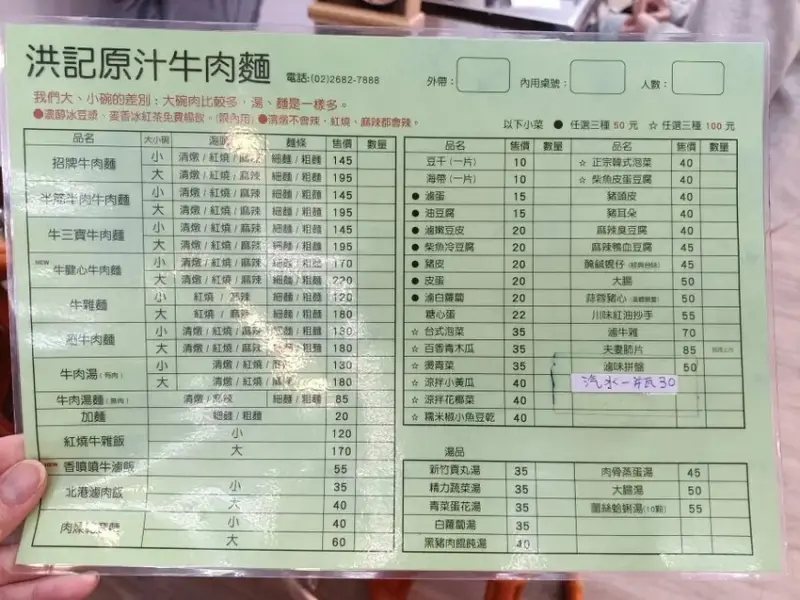 洪記原汁牛肉麵 電話:(02)2682-7888 外帶: 內用桌號: 人數:
我們大、小碗的差別:大碗肉比較多,湯、麵是一樣多。
●濃醇冰豆漿、麥香冰紅茶免費暢飲。(限內用)●清燉不會辣,紅燒、麻辣都會辣。
以下小菜 ● 任選三種 50 元 ☆ 任選三種 100 元
品名 大小碗 湯頭 麵條 售價 數量
招牌牛肉麵 小 清燉/紅燒/麻辣 細麵/粗麵 145
大 清燉/紅燒/麻辣 細麵/粗麵 195
半筋半肉牛肉麵 小 清燉/紅燒/麻辣 細麵/粗麵 145
大 清燉/紅燒/麻辣 細麵/粗麵 195
牛三寶牛肉麵 小 清燉/紅燒/麻辣 細麵/粗麵 145
大 清燉/紅燒/麻辣 細麵/粗麵 195
NEW 牛腱心牛肉麵 小 清燉/紅燒/麻辣 細麵/粗麵 170
大 清燉/紅燒/麻辣 細麵/粗麵 220
牛雜麵 小 紅燒 / 麻辣 細麵/粗麵 120
大 紅燒 / 麻辣 細麵/粗麵 180
牛肉麵 小 清燉/紅燒/麻辣 細麵/粗麵 130
大 清燉/紅燒/麻辣 細麵/粗麵 180
牛肉湯(有肉) 小 清燉/紅燒/麻辣 130
大 清燉/紅燒/麻辣 180
牛肉湯麵(無肉) 清燉/麻辣 細麵/粗麵 85
加麵 細麵/粗麵 20
紅燒牛雜飯 小 120
大 170
NEW 香噴噴牛滷飯 55
北港滷肉飯 小 35
大 40
肉燥乾意麵 小 40
大 60
品名 售價 數量 品名 售價 數量
豆干(一片) 10 ☆ 正宗韓式泡菜 40
海帶(一片) 10 ☆ 柴魚皮蛋豆腐 40
● 滷蛋 15 豬頭皮 40
● 油豆腐 15 豬耳朵 40
● 滷嫩豆皮 20 麻辣臭豆腐 40
● 柴魚冷豆腐 20 麻辣鴨血豆腐 45
● 豬皮 20 醃鹹蜆仔 45
● 皮蛋 20 大腸 50
● 滷白蘿蔔 20 蒜蓉豬心 50
糖心蛋 22 川味紅油抄手 55
☆ 台式泡菜 35 滷牛雜 70
☆ 百香青木瓜 35 夫妻肺片 85
☆ 燙青菜 35 滷味拼盤 50
☆ 涼拌小黃瓜 40 汽水一瓶30
☆ 涼拌花椰菜 40
☆ 糯米椒小魚豆乾 40
湯品
新竹貢丸湯 35 肉骨蒸蛋湯 45
精力蔬菜湯 35 大腸湯 50
青菜蛋花湯 35 薑絲蛤蜊湯(10顆) 55
白蘿蔔湯 35
黑豬肉餛飩湯 40